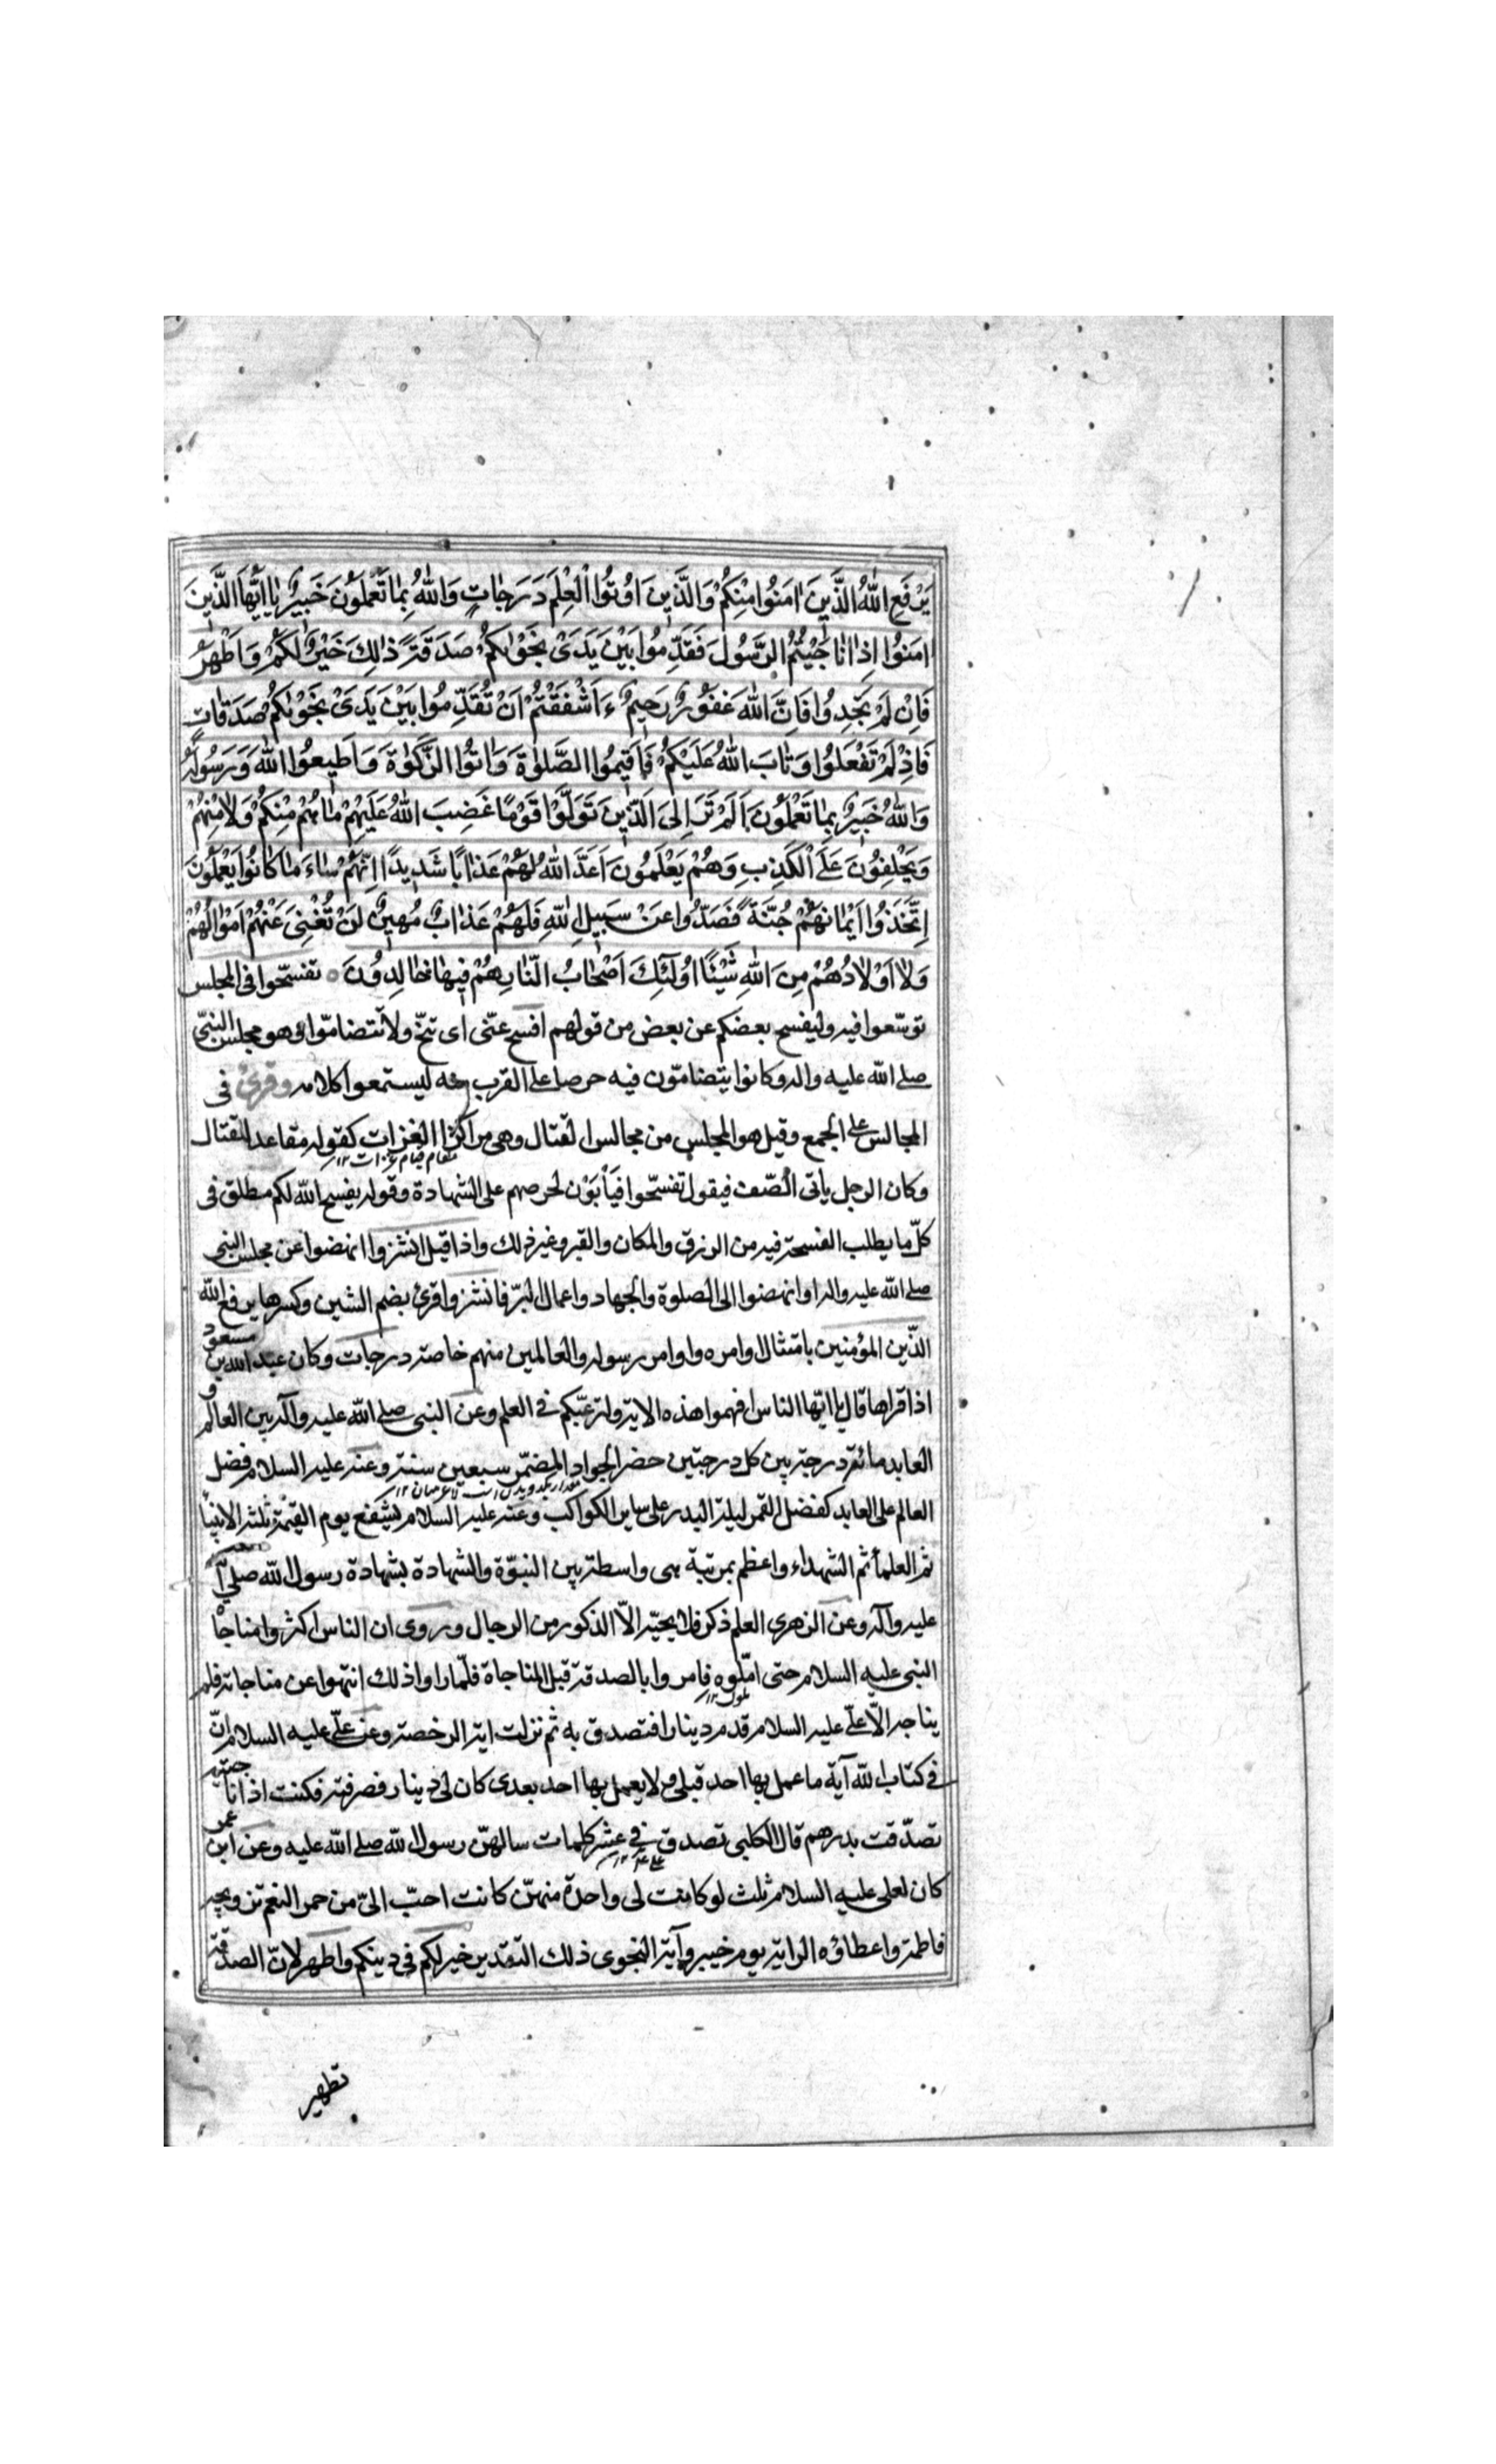 يَرْفَعِ اللّٰهُ الَّذِينَ اٰمَنُوا مِنْكُمْ وَالَّذِينَ اُوتُوا الْعِلْمَ دَرَجٰاتٍ وَاللّٰهُ بِمٰا تَعْمَلُونَ خَبِيرٌ يٰا اَيُّهَا الَّذِينَ
اٰمَنُوا اِذٰا نٰاجَيْتُمُ الرَّسُولَ فَقَدِّمُوا بَيْنَ يَدَىْ نَجْوٰىكُمْ صَدَقَةً ذٰلِكَ خَيْرٌ لَكُمْ وَاَطْهَرُ
فَاِنْ لَمْ تَجِدُوا فَاِنَّ اللّٰهَ غَفُورٌ رَحِيمٌ ءَاَشْفَقْتُمْ اَنْ تُقَدِّمُوا بَيْنَ يَدَىْ نَجْوٰىكُمْ صَدَقٰاتٍ
فَاِذْ لَمْ تَفْعَلُوا وَتٰابَ اللّٰهُ عَلَيْكُمْ فَاَقِيمُوا الصَّلٰوةَ وَاٰتُوا الزَّكٰوةَ وَاَطِيعُوا اللّٰهَ وَرَسُولَهُ
وَاللّٰهُ خَبِيرٌ بِمٰا تَعْمَلُونَ اَلَمْ تَرَ اِلَى الَّذِينَ تَوَلَّوْا قَوْمًا غَضِبَ اللّٰهُ عَلَيْهِمْ مٰا هُمْ مِنْكُمْ وَلٰا مِنْهُمْ
وَيَحْلِفُونَ عَلَى الْكَذِبِ وَهُمْ يَعْلَمُونَ اَعَدَّ اللّٰهُ لَهُمْ عَذٰابًا شَدِيدًا اِنَّهُمْ سٰاءَ مٰا كٰانُوا يَعْمَلُونَ
اِتَّخَذُوا اَيْمٰانَهُمْ جُنَّةً فَصَدُّوا عَنْ سَبِيلِ اللّٰهِ فَلَهُمْ عَذٰابٌ مُهِينٌ لَنْ تُغْنِىَ عَنْهُمْ اَمْوٰالُهُمْ
وَلٰا اَوْلٰادُهُمْ مِنَ اللّٰهِ شَيْئًا اُولٰئِكَ اَصْحٰابُ النّٰارِ هُمْ فِيهٰا خٰالِدُونَ ○ تفسّحوا فى المجلس
توسّعوا فيه وليفسح بعضكم عن بعض من قولهم افسح عنّى اى تنحّ ولا تتضامّوا وهو مجلس النبىّ
صلى الله عليه واله وكانوا يتضامّون فيه حرصا على القرب منه ليستمعوا كلامه وقرئ فى
المجالس على الجمع وقيل هو المجلس من مجالس القتال وهى مراكز الغزات كقوله مقاعد للقتال
وكان الرجل ياتى الصّف فيقول تفسّحوا فيأبون لحرصهم على الشهادة وقوله يفسح الله لكم مطلق فى
كلّ ما يطلب الفسحة فيه من الرزق والمكان والقبر وغير ذلك واذا قيل انشزوا انهضوا عن مجلس النبى
صلى الله عليه واله او انهضوا الى الصلوة والجهاد واعمال البرّ فانشزوا قرئ بضم الشين وكسرها يرفع الله
الذّين المؤمنين بامتثال اوامره واوامر رسوله والعالمين منهم خاصة درجات وكان عبد الله بن مسعود
اذا قراها قال يا ايّها الناس افهموا هذه الاية ولترغّبكم فى العلم وعن النبى صلى الله عليه وآله بين العالم و
العابد مائة درجة بين كل درجتين حضر الجواد المضمّر سبعين سنة وعنه عليه السلام فضل
العالم على العابد كفضل القمر ليلة البدر على ساير الكواكب وعنه عليه السلام يشفع يوم القيمة ثلثة الانبيا
ثم العلما ثم الشهداء واعظم بمرتبة هى واسطة بين النبوّة والشهادة بشهادة رسول الله صلى الله
عليه وآله وعن الزهرى العلم ذكر فلا يحبّه الاّ الذكور من الرجال وروى ان الناس اكثروا مناجاة
النبى عليه السلام حتى املّوه فامروا بالصدقة قبل المناجاة فلمّا راوا ذلك انتهوا عن مناجاته فلم
يناجه الاّ علىّ عليه السلام قدم دينارا فتصدق به ثم نزلت اية الرخصة وعن علىّ عليه السلام انّ
فى كتاب الله آية ما عمل بها احد قبلى ولا يعمل بها احد بعدى كان لى دينار فصرفته فكنت اذا ناجيته
تصدّقت بدرهم قال الكلبى تصدق فى عشر كلمات سالهنّ رسول الله صلى الله عليه وعن ابن عمر
كان لعلى عليه السلام ثلث لو كانت لى واحدة منهنّ كانت احبّ الىّ من حمر النعم تزويجه
فاطمة واعطاؤه الراية يوم خيبر وآية النجوى ذلك التقديم خير لكم فى دينكم واطهر لانّ الصدقة
تطهير